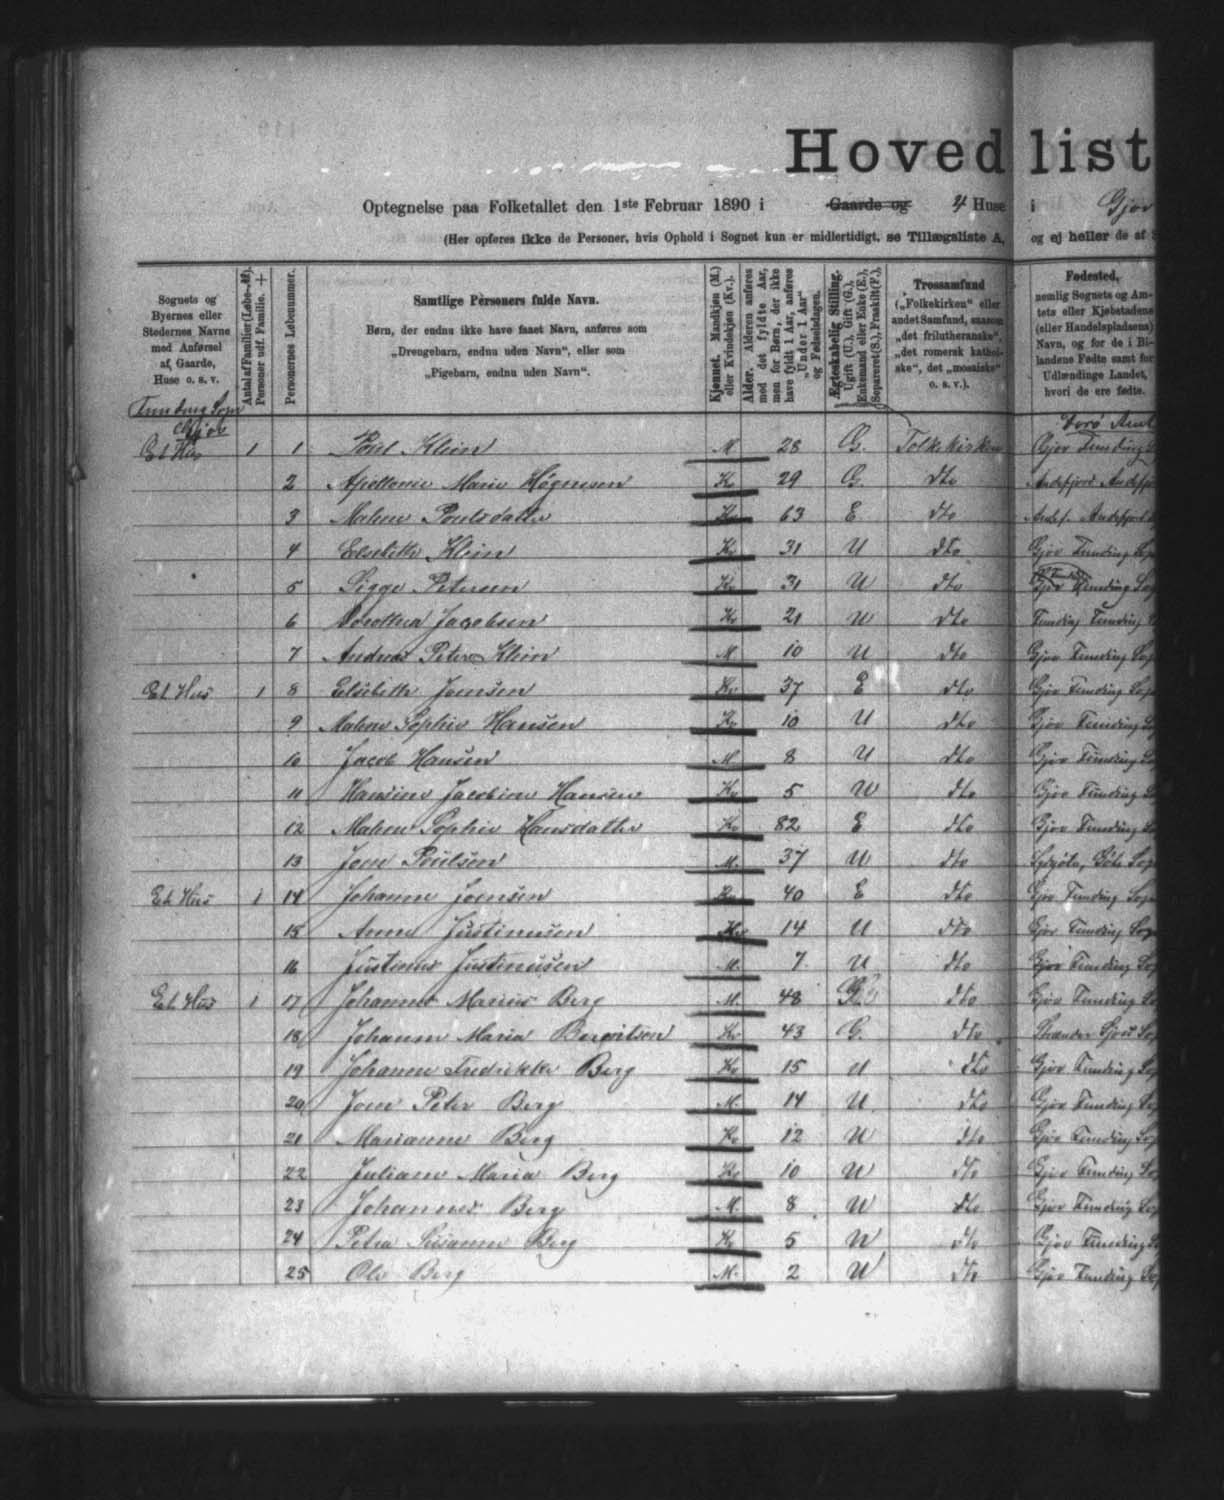 Hovedlist
Optegnelse paa Folketallet den 1ste Februar 1890 i Gaarde og 4 Huse i Gjov
(Her opføres ikke de Personer, hvis Ophold i Sognet kun er midlertidigt, se Tillægsliste A, og ej heller de af
Sognets og Byernes eller Stedernes Navne med Anførsel af, Gaarde, Huse o. s. v.
Antal af Familier (Løbe-№). Personer udf. Familie. +
Personernes Løbenummer.
Samtlige Personers fulde Navn.
Børn, der endnu ikke have faaet Navn, anføres som
„Drengebarn, endnu uden Navn", eller som
„Pigebarn, endnu uden Navn".
Kjønnet. Mandkjøn (M.) eller Kvindekjøn (Kv.).
Alder. Alderen anføres med det fyldte Aar, men for Børn, der ikke have fyldt 1 Aar, anføres „Under 1 Aar" og Fødselsdagen.
Ægteskabelig Stilling. Ugift (U.), Gift (G.), Enkemand eller Enke (E.), Separeret (S.), Fraskilt (F.),
Trossamfund („Folkekirken" eller andet Samfund, saasom „det frilutheranske", „det romersk katholske", det „mosaiske" o. s. v.).
Fødested, nemlig Sognets og Amtets eller Kjøbstadens (eller Handelspladsens) Navn, og for de i Bilandene Fødte samt for Udlændinge Landet, hvori de ere fødte.
Funding Sogn
Gjov
Færø Amt
Et Hus 1 1 Poul Klein M 28 G. Folkekirken Gjov Funding
2 Apollonie Marie Høgnesen Kv 29 G. dto Andefjord Andefj
3 Malene Poulsdatter Kv 63 E dto Andef. Andefjord
4 Elsebeth Klein Kv 31 U dto Gjov Funding Sog
5 Sigga Petersen Kv 31 U dto Funding Sog
6 Dorothea Jacobsen Kv 21 U dto Funding Funding
7 Andreas Peter Klein M. 10 U dto Gjov Funding Sog
Et Hus 1 8 Elsebeth Joensen Kv 37 E dto Gjov Funding Sog
9 Malene Sophie Hansen Kv 10 U dto Gjov Funding
10 Jacob Hansen M. 8 U dto Gjov Funding
11 Hansine Jacobine Hansen Kv 5 U dto Gjov Funding
12 Malene Sophie Hansdatter Kv 82 E dto Gjov Funding
13 Joen Poulsen M. 37 U dto Sogn
Et Hus 1 14 Johanne Joensen Kv 40 E dto Gjov Funding Sogn
15 Anna Justinussen Kv 14 U dto Gjov Funding Sog
16 Justinus Justinussen M. 7 U dto Gjov Funding Sog
Et Hus 1 17 Johannes Marius Berg M. 48 G. dto Gjov Funding
18 Johanne Maria Kv 43 G. dto
19 Johanne Fredrikke Berg Kv 15 U dto Gjov Funding Sog
20 Joen Peter Berg M. 14 U. dto Gjov Funding
21 Marianne Berg Kv 12 U dto Gjov Funding Sog
22 Juliane Maria Berg Kv 10 U dto Gjov Funding
23 Johannes Berg M. 8 U dto Gjov Funding
24 Petra Susanne Berg Kv 5 U dto Gjov Funding
25 Ole Berg M. 2 U dto Gjov Funding